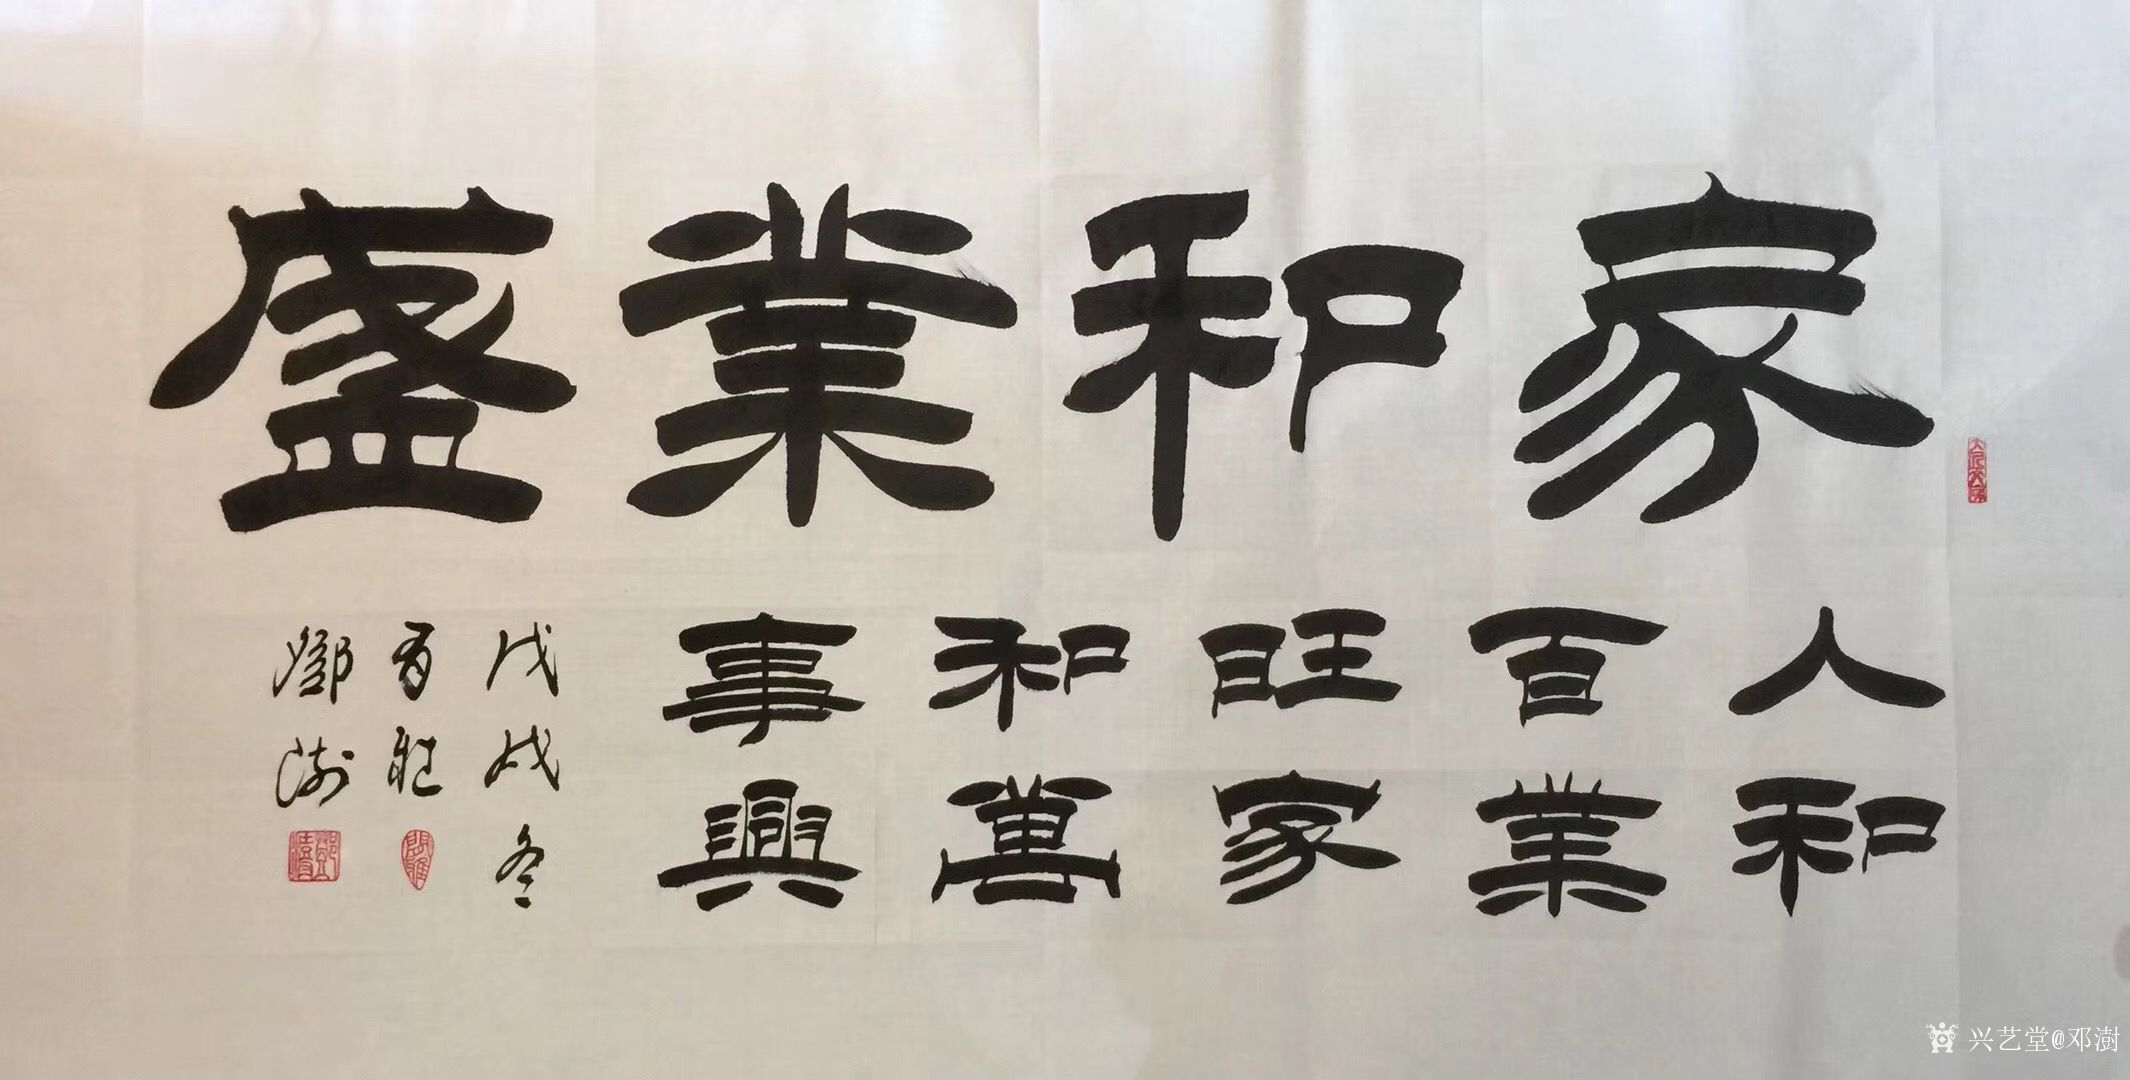 家和業盛
人和
百業
旺家
和萬
事興
戊戌冬
鄧澍
兴艺堂@邓澍